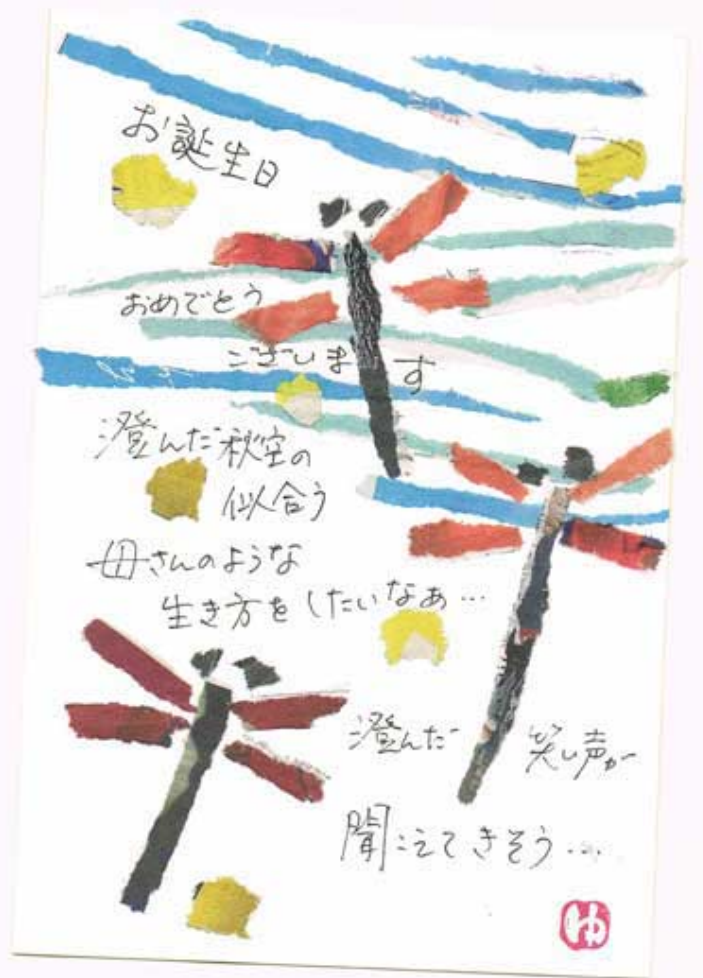 お誕生日
おめでとう
ございます
澄んだ秋空の
似合う
母さんのような
生き方をしたいなぁ…
澄んだ 笑い声が
聞こえてきそう…
ゆ